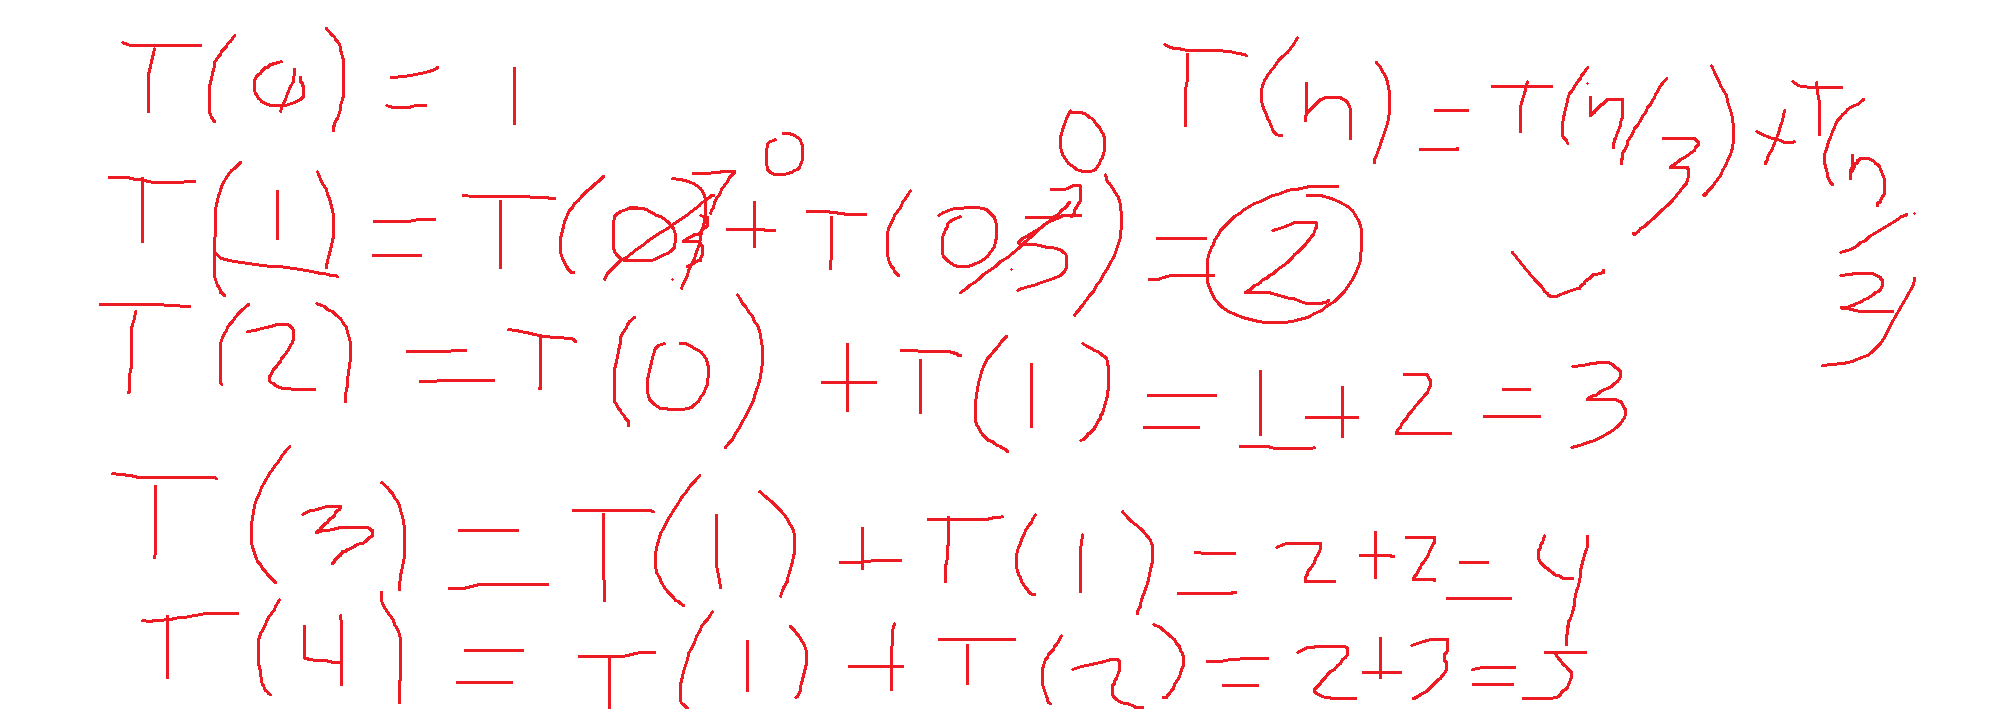 T(0) = 1
T(n) = T(n/3) + T(n/2)
T(1) = T(0.3) 0 + T(0.5) 0 = 2
T(2) = T(0) + T(1) = 1 + 2 = 3
T(3) = T(1) + T(1) = 2 + 2 = 4
T(4) = T(1) + T(2) = 2 + 3 = 5